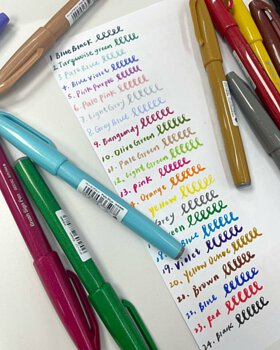 1. Blue Black
2. Turquoise Green
3. Pale Blue
4. Blue Violet
5. Pink Purple
6. Pale Pink
7. Light Grey
8. Gray Blue
9. Burgundy
10. Olive Green
11. Pale Green
12. Light Green
13. Pink
14. Orange
Yellow
Grey
Green
Blue
19. Violet
20. Yellow Ochre
21. Brown
22. Blue
23. Red
24. Black